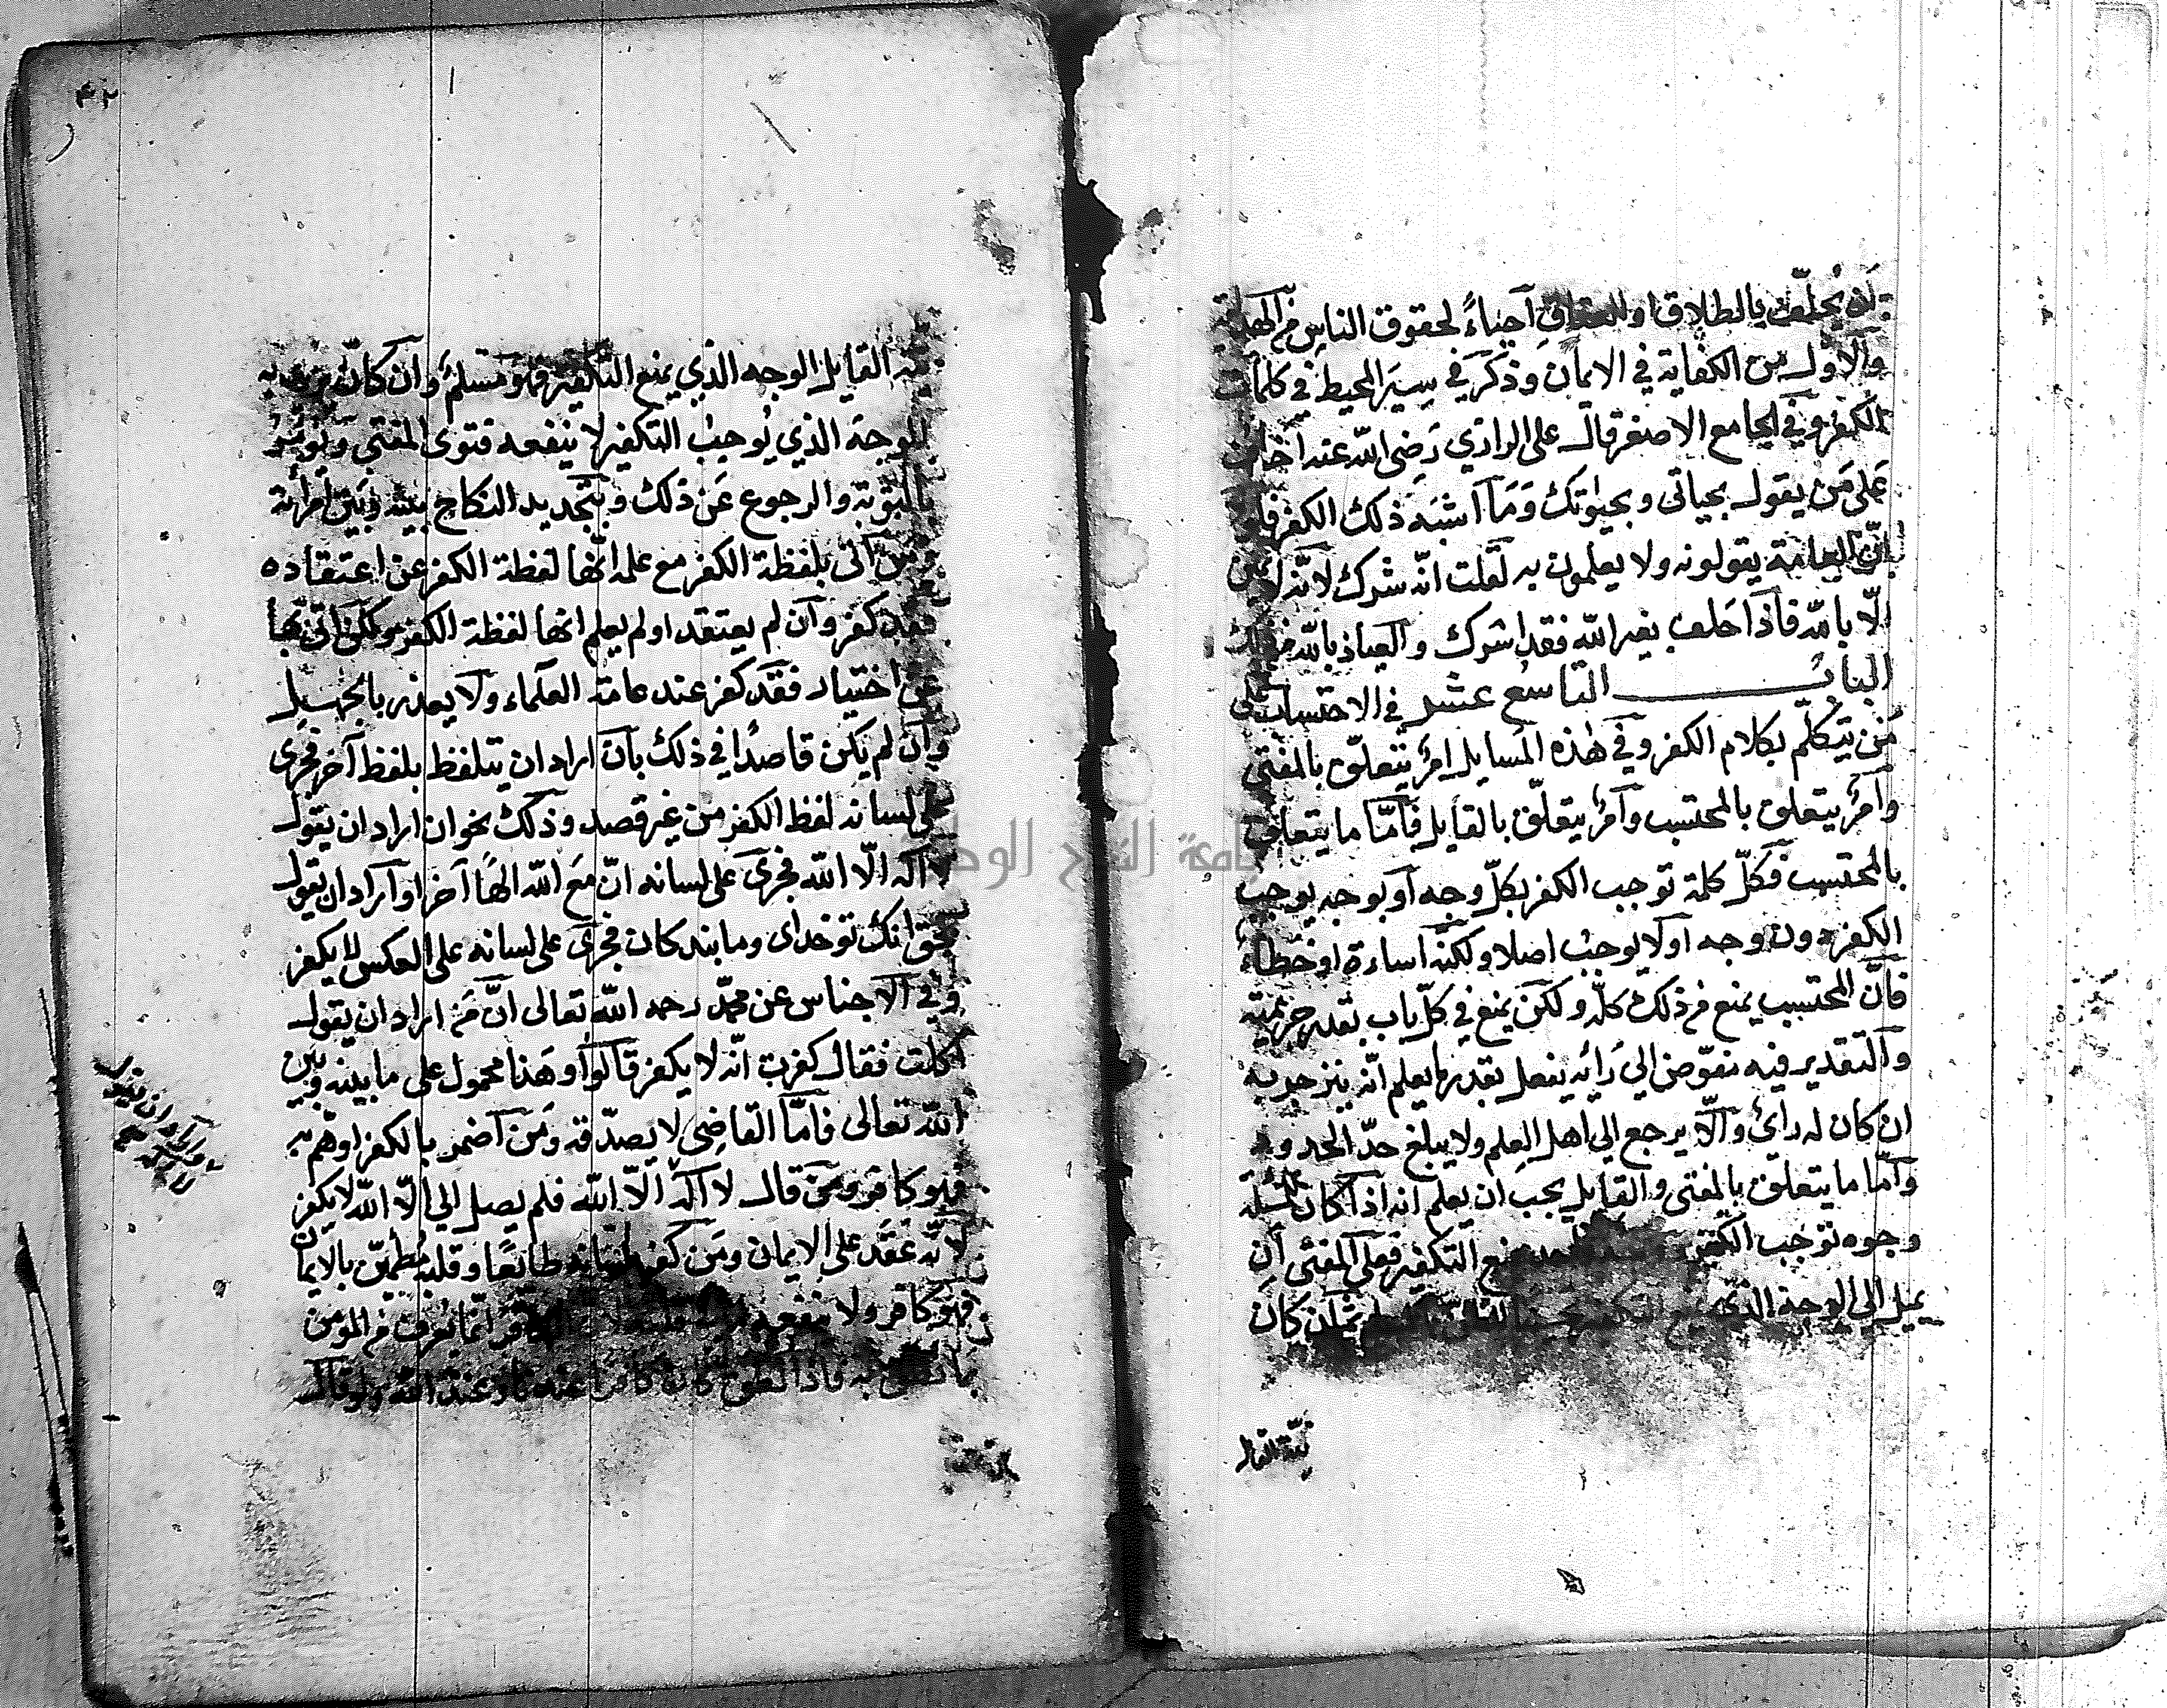 ان يحلّف بالطلاق او العتاق احياءً لحقوق الناس من الهداية
والاول من الكفاية في الايمان وذكر في سير المحيط في كلمات
الكفر وفي الجامع الاصغر قال على الرازي رضى الله عنه اخاف
على من يقول بحياتى وبحيوتك وما اشبه ذلك الكفر فلو
انّ العامة يقولونه ولا يعلمون به لقلت انّه شرك لانّه لا يمين
الّا بالله فاذا حلف بغير الله فقد اشرك والعياذ بالله من ذلك
الباب التاسع عشر في الاحتساب على
من يتكلّم بكلام الكفر وفي هذه المسايل امر يتعلّق بالمفتى
وامر يتعلق بالمحتسب وامر يتعلّق بالقايل فامّا ما يتعلق
بالمحتسب فكلّ كلمة توجب الكفر بكلّ وجه او بوجه يوجب
الكفر دون وجه او لا يوجب اصلا ولكنّه اساءة او خطاء
فانّ المحتسب يمنع من ذلك كلّه ولكن يمنع في كلّ باب بقدر جريمته
والتقدير فيه مفوّض الى رائه يفعل بقدر ما يعلم انّه ينزجر به
ان كان له رأى والّا يرجع الى اهل العلم ولا يبلغ حدّ الحدود
وامّا ما يتعلق بالمفتى والقايل يجب ان يعلم انه اذا كان للمسئلة
وجوه توجب الكفر يمنع التكفير فعلى المفتى ان
يميل الى الوجه الذى كان
نيّة القايل
نيّة القايل الوجه الذي يمنع التكفير فهو مسلم وان كان نيته
الوجه الذي يوجب التكفير لا ينفعه فتوى المفتى ويؤمر
بالتوبة والرجوع عن ذلك وبتجديد النكاح بينه وبين امرأته
من اتى بلفظة الكفر مع علمه انّها لفظة الكفر عن اعتقاده
فقد كفر وان لم يعتقد او لم يعلم انها لفظة الكفر ولكن اتى بها
عن اختيار فقد كفر عند عامة العلماء ولا يعذر بالجهل
وان لم يكن قاصدًا في ذلك بان اراد ان يتلفظ بلفظ آخر فجرى
على لسانه لفظ الكفر من غير قصد وذلك نحو ان اراد ان يقول
لا اله الّا الله فجرى على لسانه انّ مع الله الهاً آخر او اراد ان يقول
بحق انك تو خداى وما بندكان فجرى على لسانه على العكس لا يكفر
وفي الاجناس عن محمّد رحمه الله تعالى انّ من اراد ان يقول
اكلت فقال كفرت انّه لا يكفر قالوا وهذا محمول على ما بينه وبين
الله تعالى فامّا القاضى لا يصدّقه ومن اضمر بالكفر او همّ به
فهو كافر ومن قال لا اله الّا الله فلم يصل الى الّا الله لا يكفر
لانّه عقد على الايمان ومن كفر بلسانه طايعًا وقلبه مطمئنّ بالايمان
فهو كافر ولا ينفعه ما في قلبه لانّ الكافر انّما يعرف من المؤمن
بما ينطق به فاذا نطق كان كافراً عندنا وعند الله ولو قال